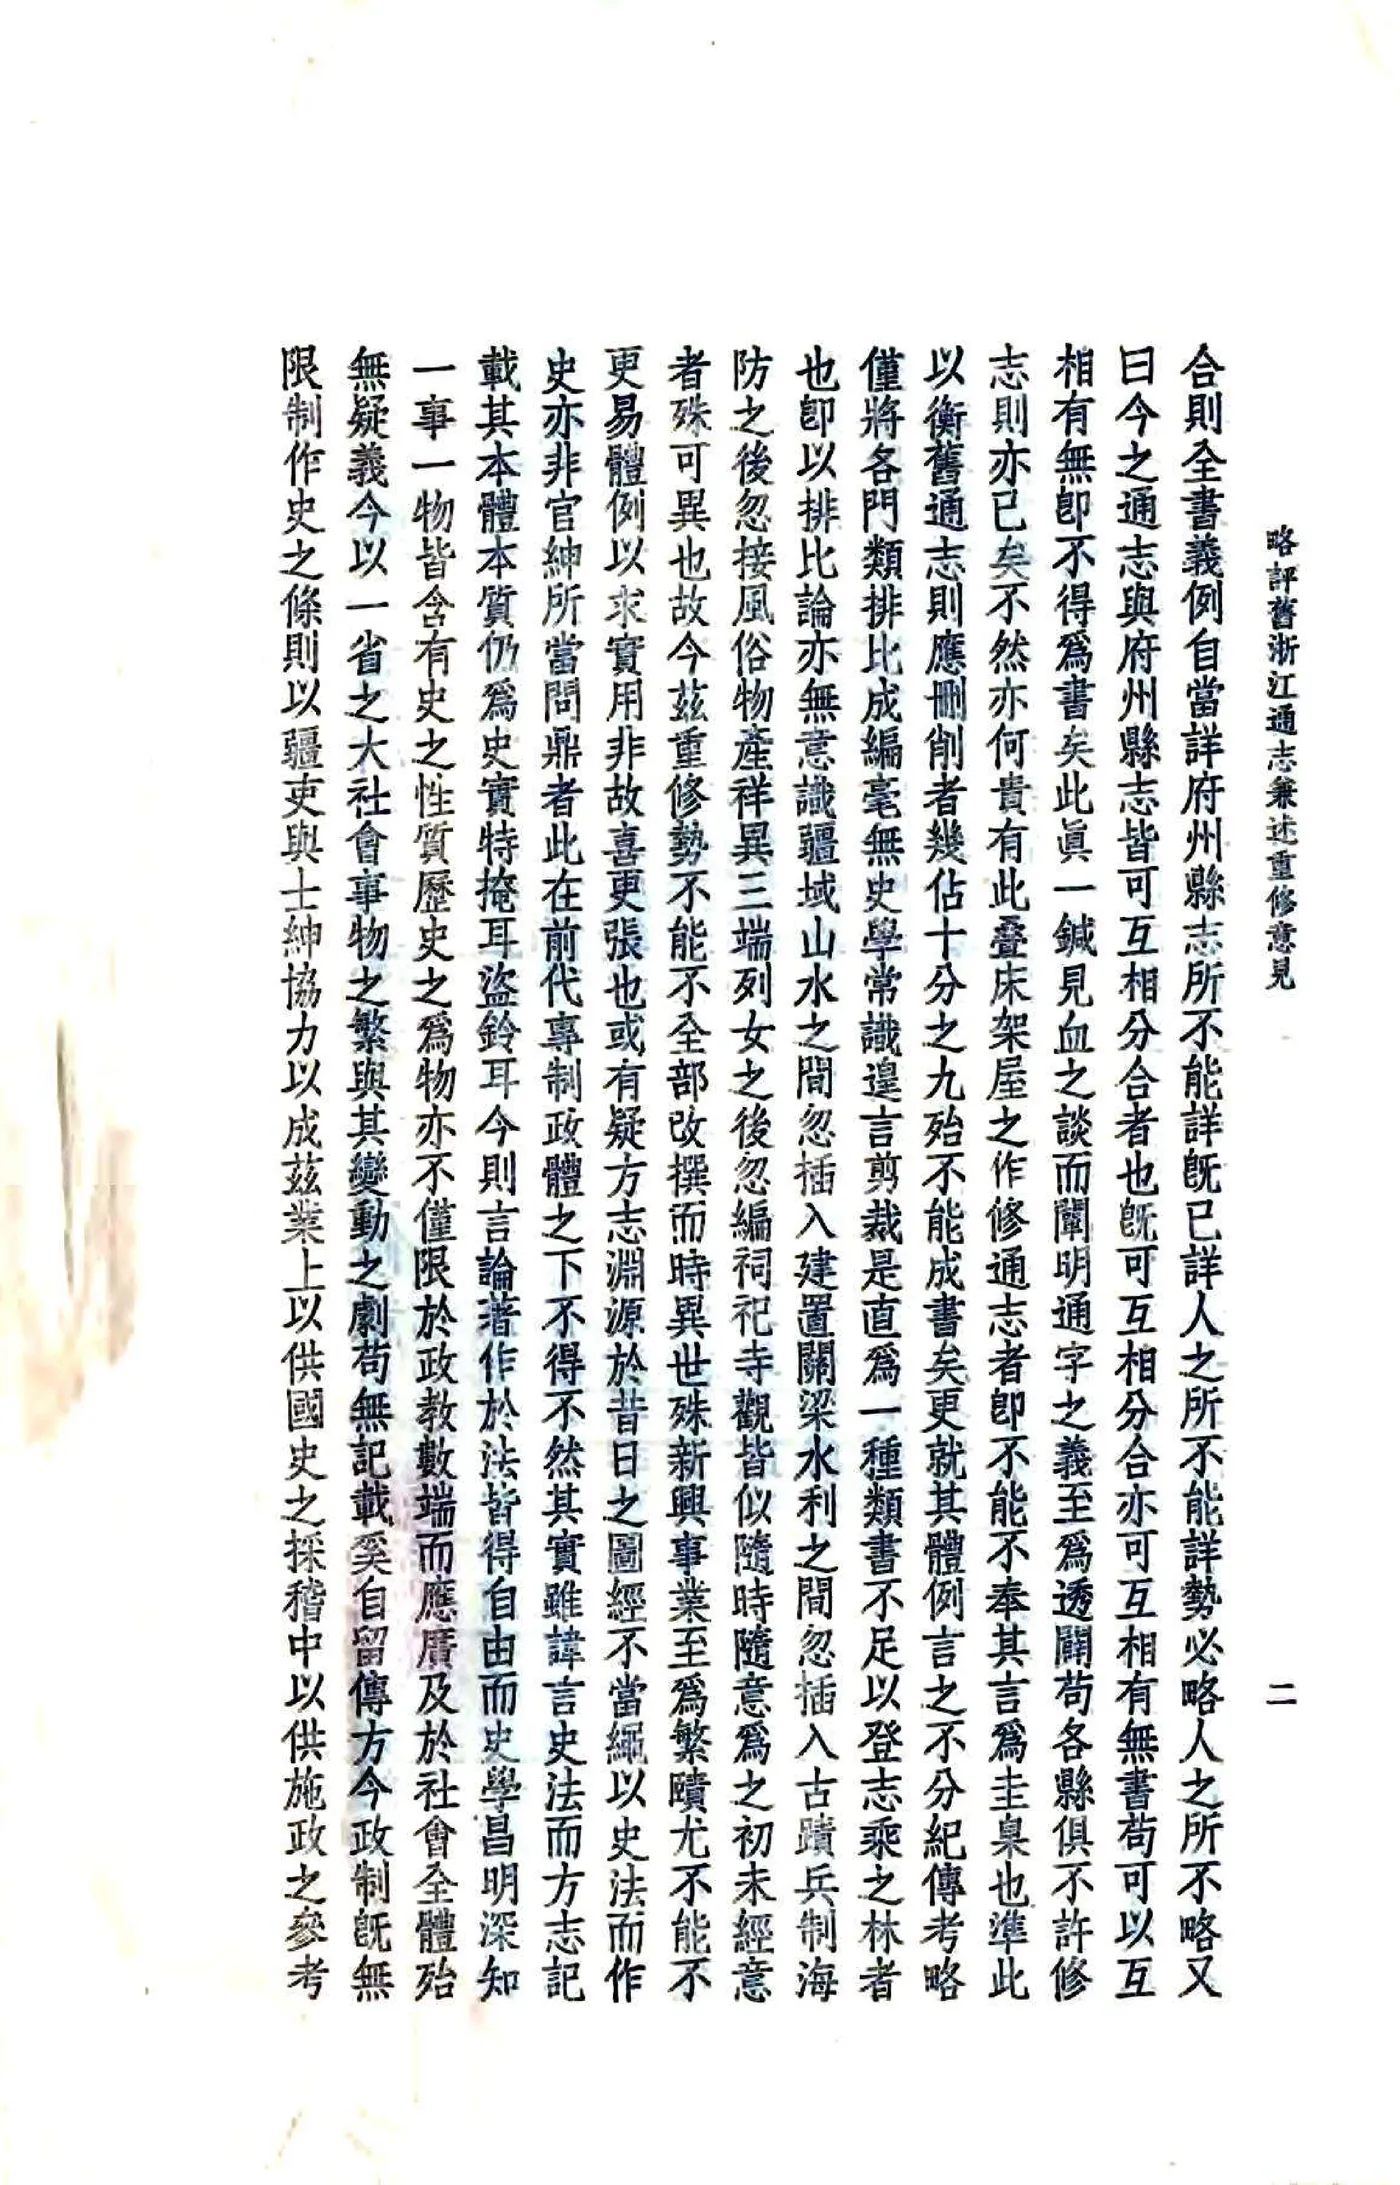 略評舊浙江通志兼述重修意見
二
合則全書義例自當詳府州縣志所不能詳旣已詳人之所不能詳勢必略人之所不略又
曰今之通志與府州縣志皆可互相分合者也旣可互相分合亦可互相有無書苟可以互
相有無卽不得爲書矣此眞一鍼見血之談而闡明通字之義至爲透闢苟各縣俱不許修
志則亦已矣不然亦何貴有此疊床架屋之作修通志者卽不能不奉其言爲圭臬也準此
以衡舊通志則應刪削者幾佔十分之九殆不能成書矣更就其體例言之不分紀傳考略
僅將各門類排比成編毫無史學常識遑言剪裁是直爲一種類書不足以登志乘之林者
也卽以排比論亦無意識疆域山水之間忽插入建置關梁水利之間忽插入古蹟兵制海
防之後忽接風俗物產祥異三端列女之後忽編祠祀寺觀皆似隨時隨意爲之初未經意
者殊可異也故今茲重修勢不能不全部改撰而時異世殊新興事業至爲繁賾尤不能不
更易體例以求實用非故喜更張也或有疑方志淵源於昔日之圖經不當繩以史法而作
史亦非官紳所當問鼎者此在前代專制政體之下不得不然其實雖諱言史法而方志記
載其本體本質仍爲史實特掩耳盜鈴耳今則言論著作於法皆得自由而史學昌明深知
一事一物皆含有史之性質歷史之爲物亦不僅限於政教數端而應廣及於社會全體殆
無疑義今以一省之大社會事物之繁與其變動之劇苟無記載奚自留傳方今政制旣無
限制作史之條則以疆吏與士紳協力以成茲業上以供國史之採稽中以供施政之參考